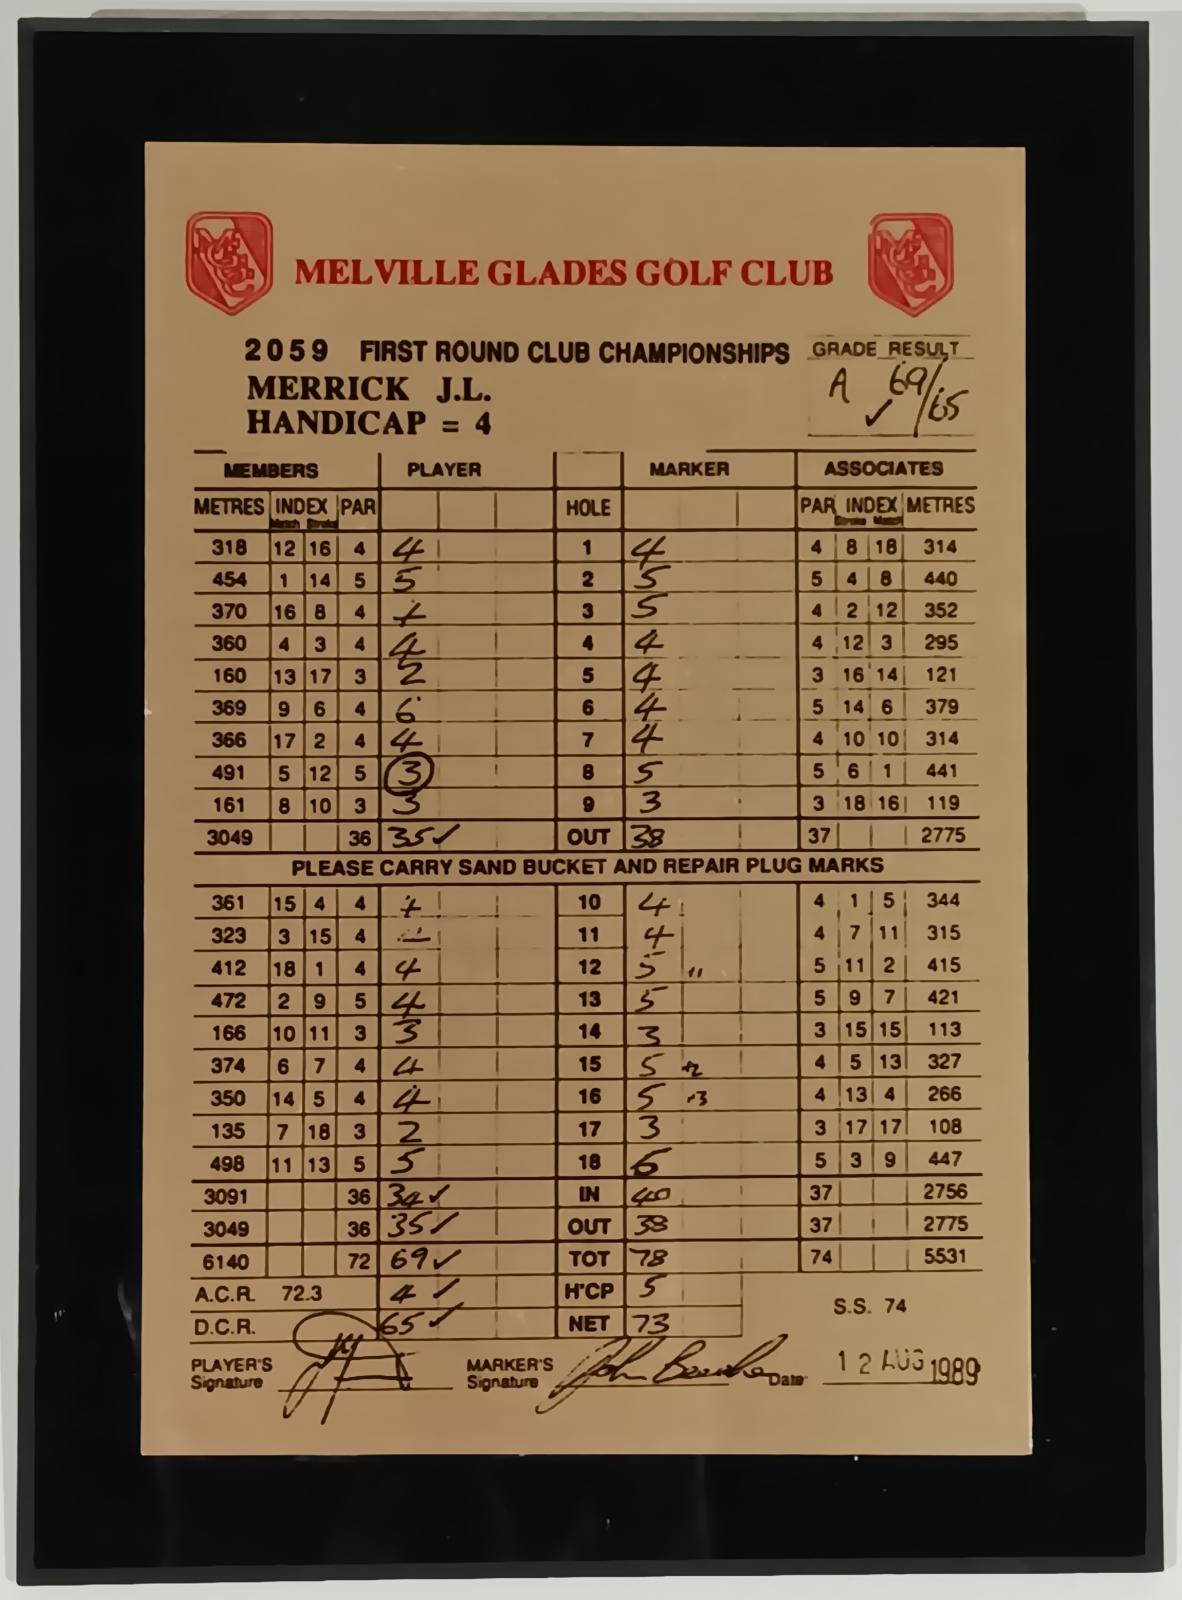 MELVILLE GLADES GOLF CLUB
2059 FIRST ROUND CLUB CHAMPIONSHIPS GRADE RESULT
MERRICK J.L. A 69/65 ✓
HANDICAP = 4
MEMBERS PLAYER MARKER ASSOCIATES
METRES INDEX PAR HOLE PAR INDEX METRES
Match Stroke Stroke Match
318 12 16 4 4 1 4 4 8 18 314
454 1 14 5 5 2 5 5 4 8 440
370 16 8 4 4 3 5 4 2 12 352
360 4 3 4 4 4 4 4 12 3 295
160 13 17 3 2 5 4 3 16 14 121
369 9 6 4 6 6 4 5 14 6 379
366 17 2 4 4 7 4 4 10 10 314
491 5 12 5 3 8 5 5 6 1 441
161 8 10 3 3 9 3 3 18 16 119
3049 36 35 ✓ OUT 38 37 2775
PLEASE CARRY SAND BUCKET AND REPAIR PLUG MARKS
361 15 4 4 4 10 4 4 1 5 344
323 3 15 4 11 4 4 7 11 315
412 18 1 4 4 12 5 5 11 2 415
472 2 9 5 4 13 5 5 9 7 421
166 10 11 3 3 14 3 3 15 15 113
374 6 7 4 4 15 5 4 5 13 327
350 14 5 4 4 16 5 4 13 4 266
135 7 18 3 2 17 3 3 17 17 108
498 11 13 5 5 18 6 5 3 9 447
3091 36 34 ✓ IN 40 37 2756
3049 36 35 ✓ OUT 38 37 2775
6140 72 69 ✓ TOT 78 74 5531
A.C.R. 72.3 4 ✓ H'CP 5 S.S. 74
D.C.R. 65 ✓ NET 73
PLAYER'S Signature MARKER'S Signature John Date 12 AUG 1989